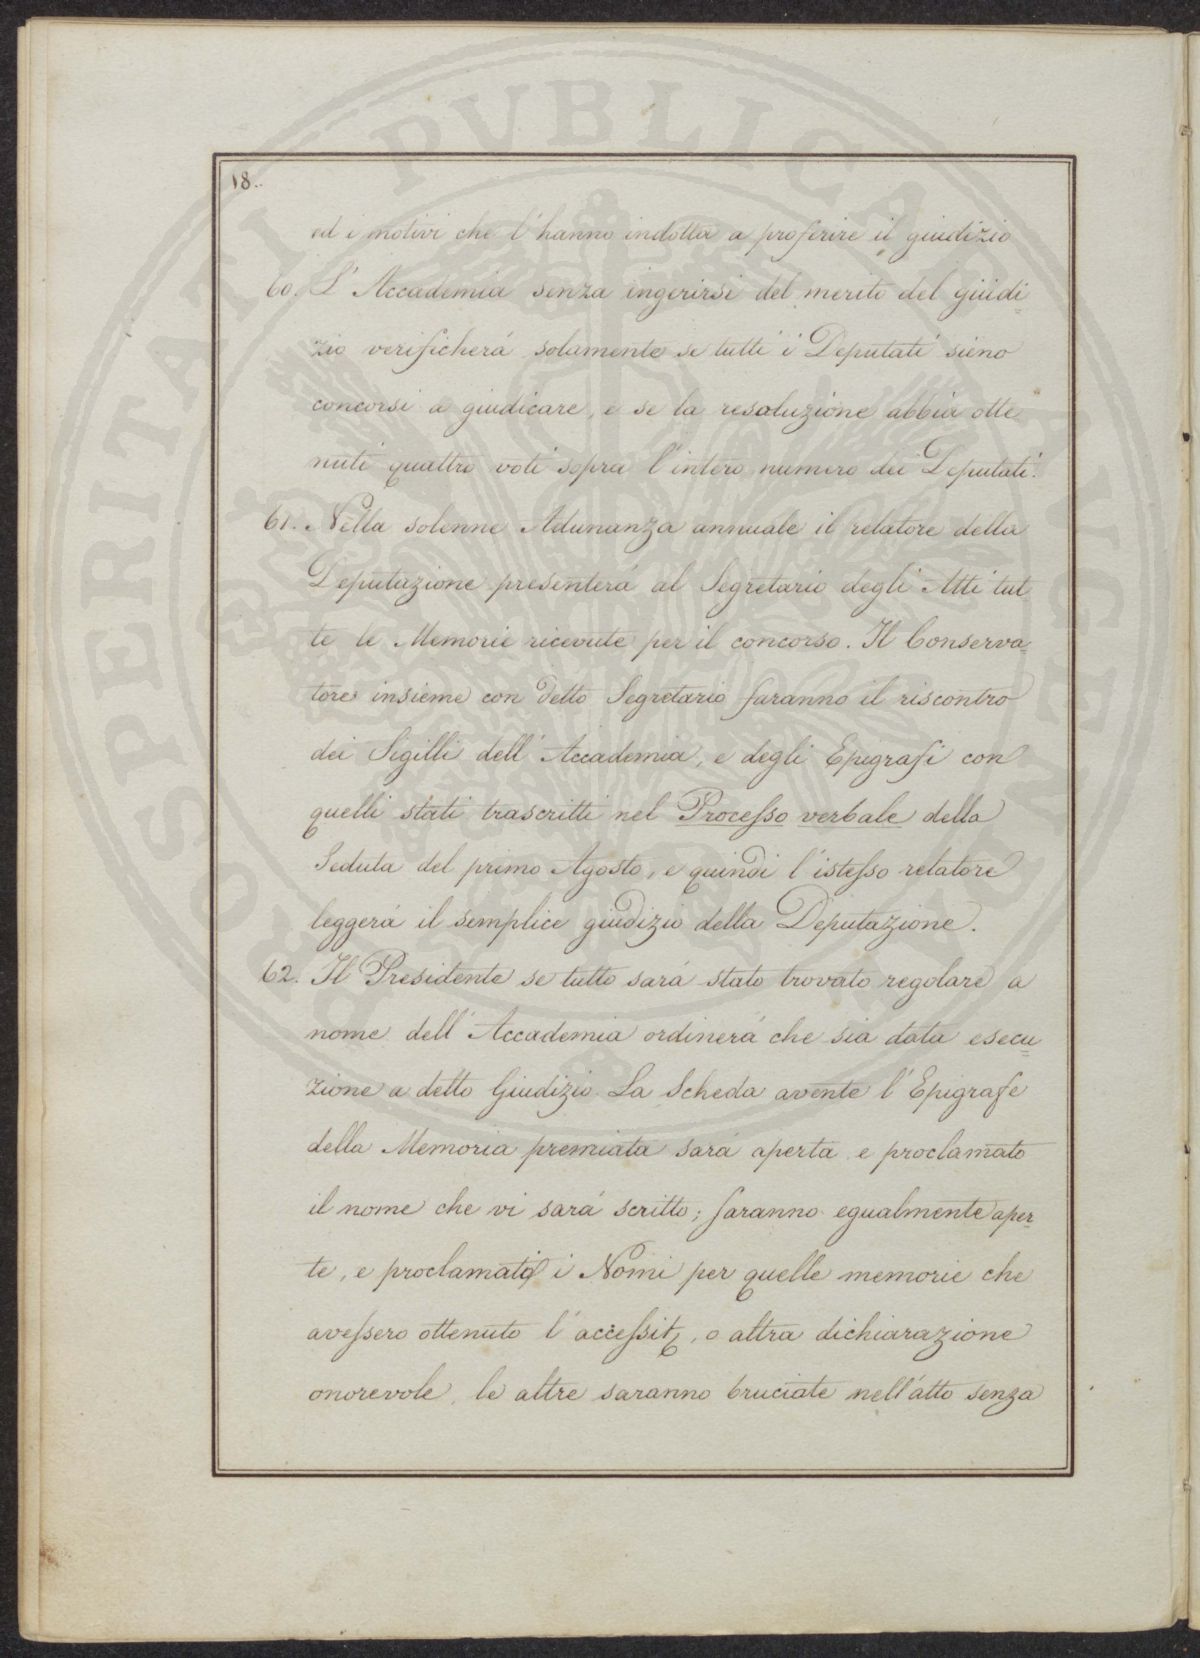 18.
ed i motivi che l'hanno indotta a proferire il giudizio
60. L'Accademia senza ingerirsi del merito del giudi
zio verificherá solamente se tutti i Deputati sieno
concorsi a giudicare, e se la resoluzione abbia otte
nuti quattro voti sopra l'intero numero dei Deputati.
61. Nella solenne Adunanza annuale il relatore della
Deputazione presenterá al Segretario degli Atti tut
te le Memorie ricevute per il concorso. Il Conserva=
tore insieme con detto Segretario faranno il riscontro
dei Sigilli dell'Accademia, e degli Epigrafi con
quelli stati trascritti nel Processo verbale della
Seduta del primo Agosto, e quindi l'istesso relatore
leggerá il semplice giudizio della Deputazione.
62. Il Presidente se tutto sará stato trovato regolare a
nome dell'Accademia ordinerá che sia data esecu=
zione a detto Giudizio. La Scheda avente l'Epigrafe
della Memoria premiata sará aperta e proclamato
il nome che vi sará scritto; saranno egualmente aper=
te, e proclamati i Nomi per quelle memorie che
avessero ottenuto l'accessit, o altra dichiarazione
onorevole, le altre saranno bruciate nell'atto senza
PROSPERITATI PVBLICAE AVGENDAE